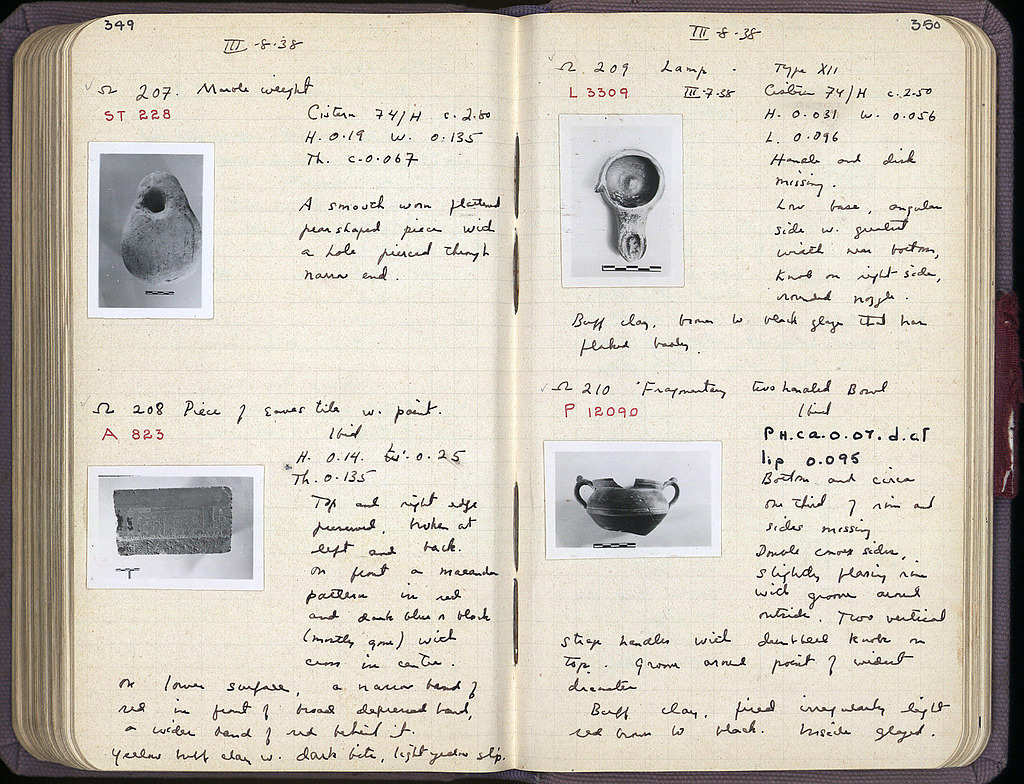 349
III-8-38
Ω 207. Marble weight
ST 228
Cistern 74/H c. 2.80
H. 0.19 W. 0.135
Th. c.0.067
A smooth worn flattened
pear shaped piece with
a hole pierced through
narrow end.
Ω 208 Piece of eaves tile w. paint.
A 823
Ibid
H. 0.14. W. 0.25
Th. 0.135
Top and right edge
preserved, broken at
left and back.
On front a maeander
pattern in red
and dark blue or black
(mostly gone) with
cross in centre.
On lower surface, a narrow band of
red in front of broad depressed band,
a wider band of red behind it.
Yellow buff clay w. dark bits, light yellow slip.
350
III-8-38
Ω 209 Lamp. Type XII
L 3309
III-7-38 Cistern 74/H c. 2.50
H. 0.031 W. 0.056
L. 0.096
Handle and disk
missing.
Low base, angular
side w. greatest
width near bottom,
knob on right side,
rounded nozzle.
Buff clay, brown to black glaze that has
flaked badly.
Ω 210 Fragmentary two handled Bowl
P 12090
Ibid
P.H. ca. 0.07. d. at
lip 0.095
Bottom and circa
one third of rim and
sides missing
Double curve sides,
slightly flaring rim
with groove around
outside. Two vertical
strap handles with knobs on
top. Groove around point of widest
diameter
Buff clay, fired irregularly light
red brown to black. Inside glazed.